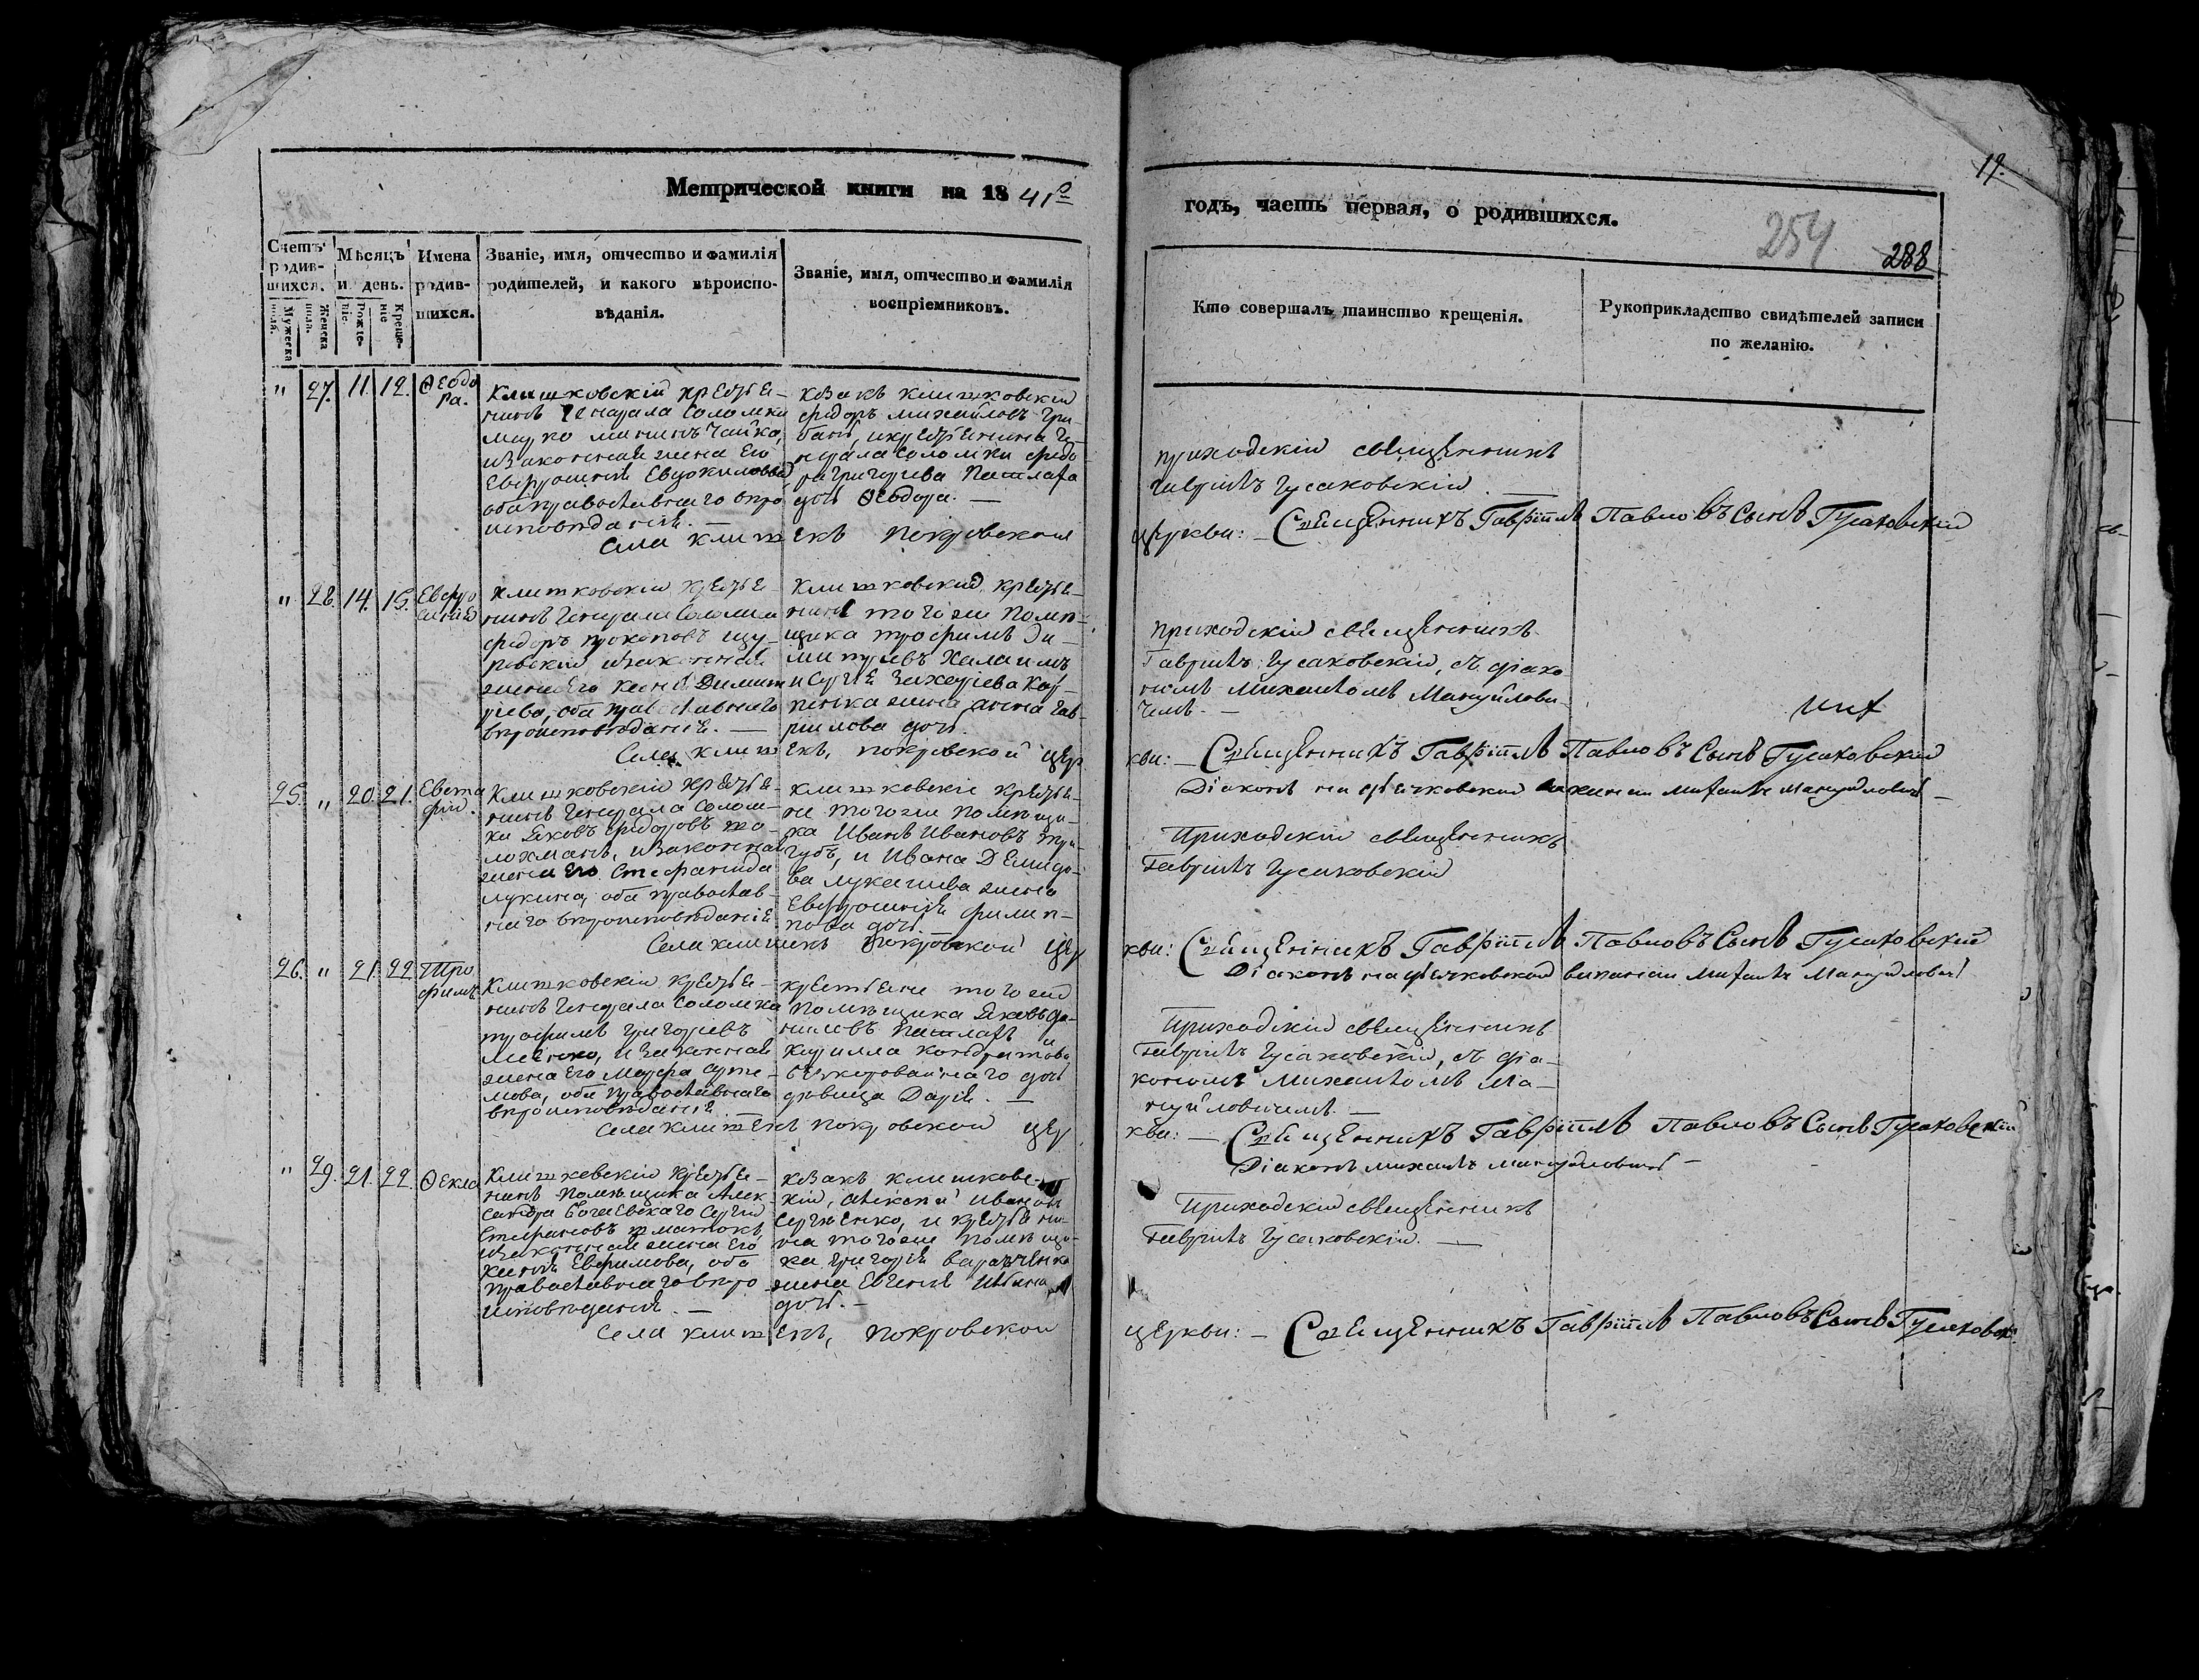 Метрической книги на 1841ᵒ
годъ, часть первая, о родившихся.
19.
254
288
Счетъ родив-шихся.
Мужеска пола.
Женска пола.
Мѣсяцъ и день.
Рожде-ніе.
Креще-ніе
Имена родив-шихся.
Званіе, имя, отчество и фамилія
родителей, и какого вѣроиспо-
вѣданія.
Званіе, имя, отчество и фамилія
воспріемниковъ.
Кто совершалъ таинство крещенія.
Рукоприкладство свидѣтелей записи
по желанію.
" 27. 11. 12. Ѳеодо
ра.
Клишковскій крестья-
нинъ Генерала Соломки
Марко Мининъ Чайко,
и законная жена Его
Евфросинія Евдокимова,
оба православнаго вѣро
исповѣданія. —
козакъ клишковскій
Федоръ Михайловъ Гри-
банъ, и крестьянина Ге-
нерала Соломки Федо-
ра Григорьева
дочь Ѳеодора. —
приходскій священникъ
Гавріилъ Гусаковскій —
Села Клишекъ Покровской
церкви: — Священникъ Гавріилъ Павловъ Сынъ Гусаковскій
" 28. 14. 15. Евфро
синія
Клишковскій крестья-
нинъ Генерала Соломки
Федоръ Прокоповъ Щу-
ровскій и законная
жена Его Ксенія Дмит
ріева, оба православнаго
вѣроисповѣданія. —
Клишковскій крестья-
нинъ того же помѣ-
щика Трофимъ Ди-
митріевъ Халаимъ
и Сергѣя Захарьева Кар-
пенка жена Анна Гав-
рилова дочь.
приходскій священникъ
Гавріилъ Гусаковскій, съ діако
номъ Михаиломъ Мануйлови-
чемъ. —
Села Клишекъ, Покровской цер
кви: — Священникъ Гавріилъ Павловъ Сынъ Гусаковскій
Діаконъ Михаилъ Мануйловичъ —
25. " 20. 21. Евста
фій.
Клишковскій крестья-
нинъ Генерала Солом-
ки Яковъ Федоровъ То-
лохманъ, и законная
жена Его Стефанида
Лукина, оба православ-
наго вѣроисповѣданія
Клишковскіе крестья-
не того же помѣщи-
ка Иванъ Ивановъ Три-
губъ, и Ивана Демидо-
ва Лукашева жена
Евфросинія Филип-
пова дочь.
Приходскій священникъ
Гавріилъ Гусаковскій
Села Клишекъ Покровской цер
кви: Священникъ Гавріилъ Павловъ Сынъ Гусаковскій
Діаконъ Михаилъ Мануйловичъ
26. " 21. 22. Тро
фимъ
Клишковскій крестья-
нинъ Генерала Соломки
Трофимъ Григорьевъ
и законная
жена Его Марфа Арте-
мова, оба православнаго
вѣроисповѣданія. —
крестьяне того же
помѣщика Яковъ Да-
ниловъ и
Кирилла Кондратова
дочь
дѣвица Дарія. —
Приходскій священникъ
Гавріилъ Гусаковскій, съ діа-
кономъ Михаиломъ Ма-
нуйловичемъ. —
Села Клишекъ Покровской цер
кви: — Священникъ Гавріилъ Павловъ Сынъ Гусаковскій
Діаконъ Михаилъ Мануйловичъ —
" 29. 21. 22. Ѳекла
Клишковскій крестья-
нинъ помѣщика Алек-
сандра Сергій
Стефановъ
и законная жена Его
Ксенія Евфимова, оба
православнаго вѣро
исповѣданія. —
козакъ клишковс-
кій, Алексѣй Ивановъ
Сергѣенко, и крестьяни-
на того же помѣщи-
ка Григорія
жена Евгенія
дочь. —
Приходскій священникъ
Гавріилъ Гусаковскій. —
Села Клишекъ, Покровской
церкви: — Священникъ Гавріилъ Павловъ Сынъ Гусаковск: